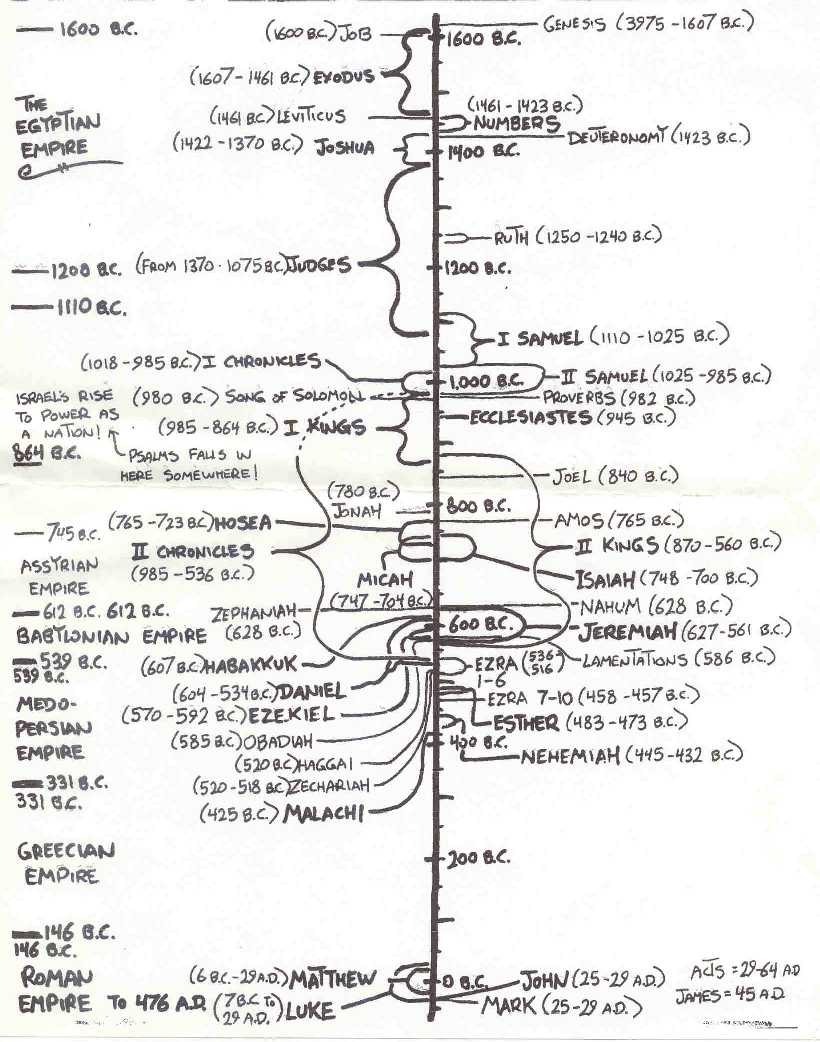 1600 B.C.
(1600 B.C.) JOB
GENESIS (3975 - 1607 B.C.)
1600 B.C.
(1607 - 1461 B.C.) EXODUS
THE
EGYPTIAN
EMPIRE
(1461 B.C.) LEVITICUS
(1461 - 1423 B.C.)
NUMBERS
DEUTERONOMY (1423 B.C.)
(1422 - 1370 B.C.) JOSHUA
1400 B.C.
RUTH (1250 - 1240 B.C.)
1200 B.C.
(FROM 1370 - 1075 B.C.) JUDGES
1200 B.C.
1110 B.C.
I SAMUEL (1110 - 1025 B.C.)
(1018 - 985 B.C.) I CHRONICLES
1,000 B.C.
II SAMUEL (1025 - 985 B.C.)
ISRAEL'S RISE
TO POWER AS
A NATION!
864 B.C.
(980 B.C.) SONG OF SOLOMON
PROVERBS (982 B.C.)
(985 - 864 B.C.) I KINGS
ECCLESIASTES (945 B.C.)
PSALMS FALLS IN
HERE SOMEWHERE!
JOEL (840 B.C.)
(780 B.C.)
JONAH
800 B.C.
745 B.C.
(765 - 723 B.C.) HOSEA
AMOS (765 B.C.)
ASSYRIAN
EMPIRE
II CHRONICLES
(985 - 536 B.C.)
II KINGS (870 - 560 B.C.)
MICAH
(747 - 704 B.C.)
ISAIAH (748 - 700 B.C.)
612 B.C. 612 B.C.
ZEPHANIAH
(628 B.C.)
NAHUM (628 B.C.)
BABYLONIAN EMPIRE
600 B.C.
JEREMIAH (627 - 561 B.C.)
539 B.C.
539 B.C.
(607 B.C.) HABAKKUK
EZRA (536 - 516)
1-6
LAMENTATIONS (586 B.C.)
MEDO-
PERSIAN
EMPIRE
(604 - 534 B.C.) DANIEL
EZRA 7-10 (458 - 457 B.C.)
(570 - 592 B.C.) EZEKIEL
ESTHER (483 - 473 B.C.)
(585 B.C.) OBADIAH
400 B.C.
NEHEMIAH (445 - 432 B.C.)
(520 B.C.) HAGGAI
(520 - 518 B.C.) ZECHARIAH
331 B.C.
331 B.C.
(425 B.C.) MALACHI
GREECIAN
EMPIRE
200 B.C.
146 B.C.
146 B.C.
ROMAN
EMPIRE TO 476 A.D.
(6 B.C. - 29 A.D.) MATTHEW
0 B.C.
JOHN (25 - 29 A.D.)
ACTS = 29-64 A.D
JAMES = 45 A.D.
(7 B.C. TO
29 A.D.) LUKE
MARK (25 - 29 A.D.)